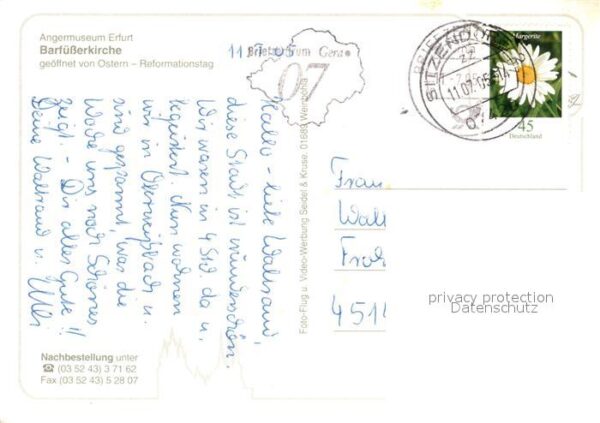 Angermuseum Erfurt
Barfüßerkirche
geöffnet von Ostern – Reformationstag
11.7.05
Briefzentrum Gera
07
SITZENDORF
11.07.05
Margerite
45
Deutschland
Hallo - liebe Waltraud,
diese Stadt ist wunderschön.
Wir waren in 4 Std. da u.
begeistert. Nun wohnen
wir in Oberweißbach u.
sind gespannt, was die
Woche uns noch Schönes
zeigt. - Dir alles Gute!!
Deine Waltraud u. Uli
Foto-Flug u. Video-Werbung Seidel & Kruse, 01689 Weinböhla
Frau
Wal
4514
privacy protection
Datenschutz
Nachbestellung unter
☎ (03 52 43) 3 71 62
Fax (03 52 43) 5 28 07